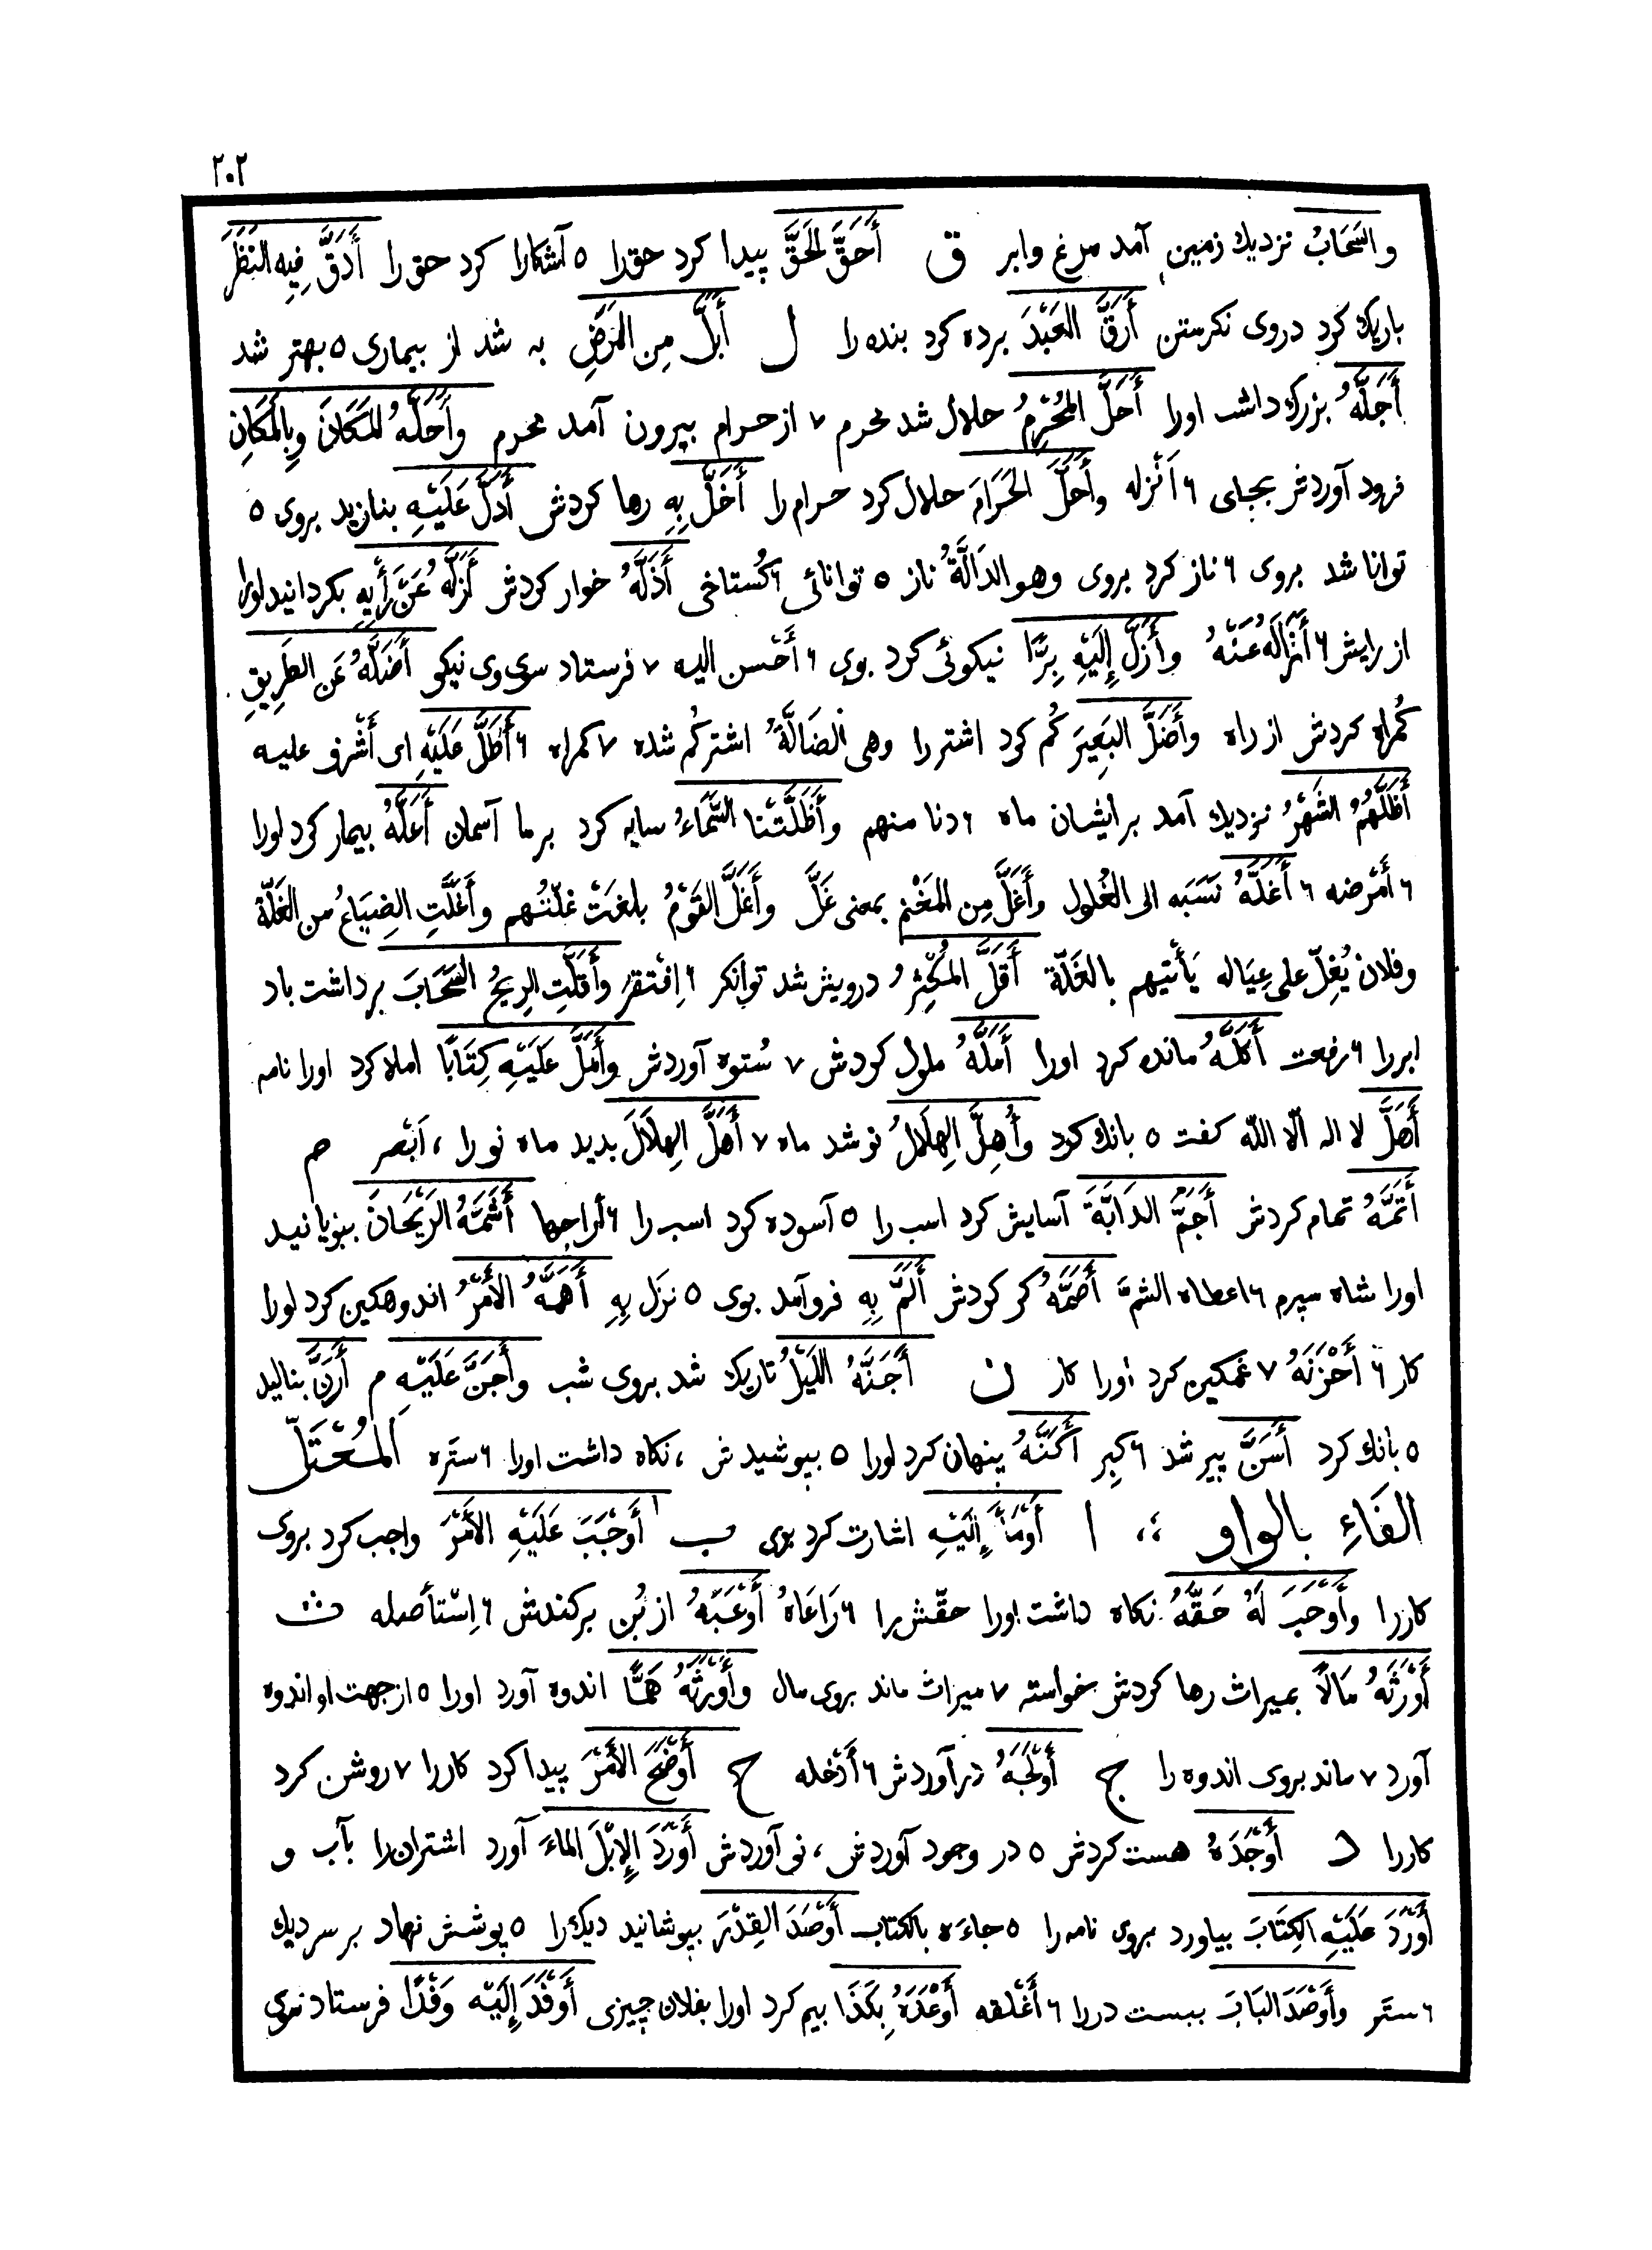 ٢٠٢
والسَّحَابُ نزديك زمين آمد مرغ وابر ق أَحَقَّ الحَقَّ پيدا كرد حق را ٥ آشكارا كرد حق را أَدَقَّ فِيهِ النَّظَرَ
باريك كرد دروى نكرستن أَرَقَّ العَبْدَ برده كرد بنده را ل أَبَلَّ مِن المَرَضِ به شد از بيمارى ٥ بهتر شد
أَجَلَّهُ بزرك داشت اورا أَحَلَّ المُحْرِمُ حلال شد محرم ٧ از حرام بيرون آمد محرم وأَحَلَّهُ المَكَانَ وبِالمَكَانِ
فرود آوردش بجاى ٦ أَنْزله وأَحَلَّ الحَرَامَ حلال كرد حرام را أَخَلَّ بِهِ رها كردش أَدَلَّ عَلَيْهِ بنازيد بروى ٥
توانا شد بروى ٦ ناز كرد بروى وهو الدَالَّةُ ناز ٥ توانائى ٦ كُستاخى أَذَلَّهُ خوار كردش أَزَلَّهُ عَنْ رَأْيِهِ بكردانيد اورا
از رايش ٦ أَزَالَهُ عَنْهُ وأَزَلَّ إِلَيْهِ بِرًّا نيكوئى كرد بوى ٦ أَحْسن اليه ٧ فرستاد سوى وى نيكو أَضَلَّهُ عَن الطَرِيقِ
كُمراه كردش از راه وأَضَلَّ البَعِيرَ كُم كرد اشتر را وهى الضَالَّةُ اشتر كُم شده ٧ كمراه ٦ أَطَلَّ عَلَيْهِ اى أَشْرف عليه
أَظَلَّهُمُ الشَهْرُ نزديك آمد برايشان ماه ٦ دنا منهم وأَظَلَّتْنا السَّمَاءُ سايه كرد بر ما آسمان أَعَلَّهُ بيمار كرد اورا
٦ أَمْرضه ٦ أَغَلَّهُ نَسَبَه الى الغُلول وأَغَلَّ مِن المَغْنم بمعنى غَلَّ وأَغَلَّ القَوْمُ بلغَتْ غلّتُهم وأَغَلَّتِ الضِيَاعُ من الغَلّة
وفلان يُغِلّ على عِيَاله يَأتيهم بالغَلّة أَقَلَّ المُكْثِرُ درويش شد توانكر ٦ اِفْتقر وأَقَلَّتِ الرِيحُ السَّحَابَ برداشت باد
ابر را ٦ رفعت أَكَلَّهُ مانده كرد اورا أَمَلَّهُ ملول كردش ٧ سُتوه آوردش وأَمَلَّ عَلَيْهِ كِتَابًا املا كرد اورا نامه
أَهَلَّ لا اله الّا الله كفت ٥ بانك كرد وأُهِلَّ الهِلَالُ نو شد ماه ٧ أَهَلَّ الهِلَالَ بديد ماه نو را ، اَبْصر م
أَتَمَّهُ تمام كردش أَجَمَّ الدَابَّةَ آسايش كرد اسب را ٥ آسوده كرد اسب را ٦ أراحها أَشَمَّهُ الرَيْحَانَ ببويانيد
اورا شاه سپرم ٦ اعطاه الشمَّ أَصَمَّهُ كر كردش أَلَمَّ بِهِ فرو آمد بوى ٥ نزَل بِهِ أَهَمَّهُ الأَمْرُ اندوهكين كرد اورا
كار ٦ أَحْزَنَهُ ٧ غمكين كرد اورا كار ن أَجَنَّهُ اللَيْلُ تاريك شد بروى شب وأَجَنَّ عَلَيْهِ م أَرَنَّ بناليد
٥ بانك كرد أَسَنَّ پير شد ٦ كبِر أَكَنَّهُ پنهان كرد اورا ٥ بپوشيدش ، نكاه داشت اورا ٦ ستَره المُعْتَلّ
الفَاءِ بالواو ؛، ا أَوْمَأَ إِلَيْهِ اشارت كرد بوى ب أَوْجَبَ عَلَيْهِ الأَمْرَ واجب كرد بروى
كار را وأَوْجَبَ لَهُ حَقَّهُ نكاه داشت اورا حقّش را ٦ رَاعَاهُ أَوْعَبَهُ از بُن بركندش ٦ اِسْتأصله ث
أَوْرَثَهُ مَالًا بميراث رها كردش خواسته ٧ ميراث ماند بروى مال وأَوْرَثَهُ هَمًّا اندوه آورد اورا ٥ از جهت او اندوه
آورد ٧ ماند بروى اندوه را ج أَوْلَجَهُ درآوردش ٦ أَدْخله ح أَوْضَحَ الأَمْرَ پيدا كرد كار را ٧ روشن كرد
كار را د أَوْجَدَهُ هست كردش ٥ در وجود آوردش ، نى آوردش أَوْرَدَ الإِبْلَ المَاءَ آورد اشتران را بآب و
أَوْرَدَ عَلَيْهِ الكِتَابَ بياورد بروى نامه را ٥ جاءَه بالكتاب أَوْصَدَ القِدْرَ بپوشانيد ديك را ٥ پوشش نهاد بر سر ديك
٦ ستَر وأَوْصَدَ البَابَ ببست در را ٦ أَغْلقه أَوْعَدَهُ بِكَذَا بيم كرد اورا بفلان چيزى أَوْفَدَ إِلَيْهِ وَفْدًا فرستاد سوى